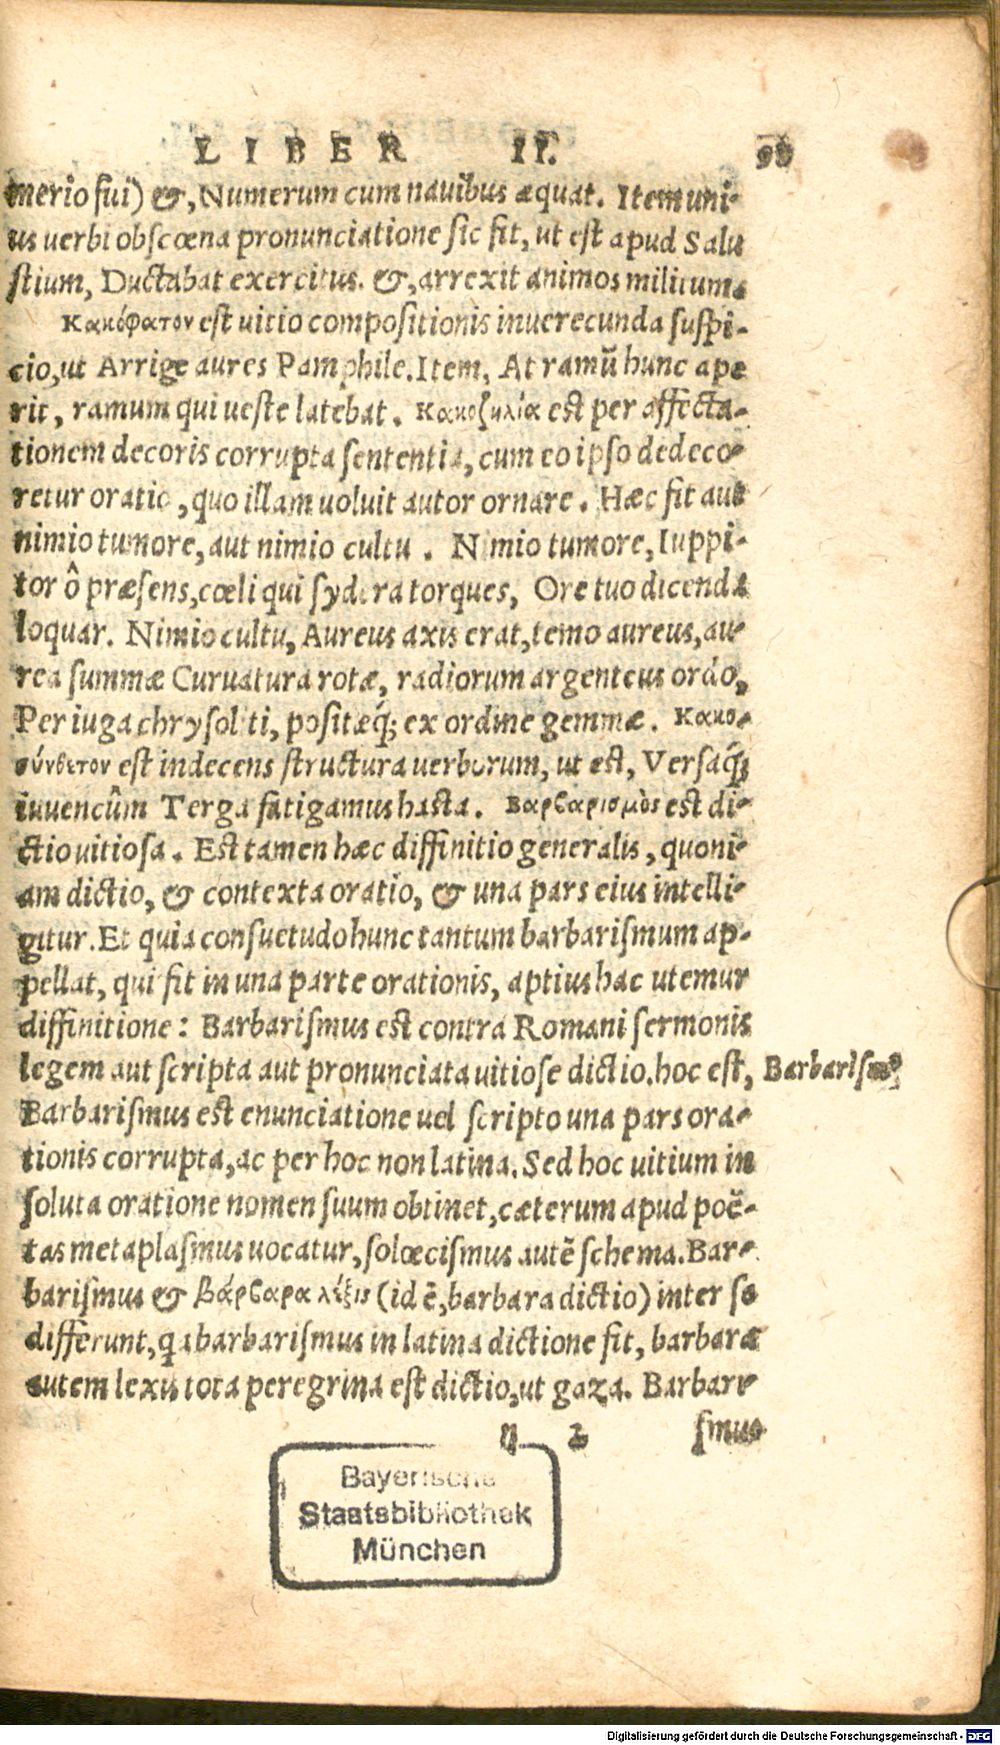 LIBER II. 98
merio fui) &, Numerum cum nauibus æquat. Item uni-
us uerbi obscœna pronunciatione sic fit, ut est apud Salu
stium, Ductabat exercitus. &, arrexit animos militum.
Κακόφατον est uitio compositionis inuerecunda suspi-
cio, ut Arrige aures Pamphile. Item, At ramũ hunc ape
rit, ramum qui ueste latebat. Κακοζηλία est per affecta-
tionem decoris corrupta sententia, cum eo ipso dedeco-
retur oratio, quo illam uoluit autor ornare. Hæc fit aut
nimio tumore, aut nimio cultu. Nimio tumore, Iuppi-
tor ô præsens, cœli qui sydera torques, Ore tuo dicenda
loquar. Nimio cultu, Aureus axis erat, temo aureus, au-
rea summæ Curuatura rotæ, radiorum argenteus ordo,
Per iuga chrysoliti, positæq́; ex ordine gemmæ. Κακο-
σύνθετον est indecens structura uerborum, ut est, Versaq́;
iuuencûm Terga fatigamus hasta. Βαρβαρισμὸς est di-
ctio uitiosa. Est tamen hæc diffinitio generalis, quoni-
am dictio, & contexta oratio, & una pars eius intelli-
gitur. Et quia consuetudo hunc tantum barbarismum ap-
pellat, qui fit in una parte orationis, aptius hac utemur
diffinitione: Barbarismus est contra Romani sermonis
legem aut scripta aut pronunciata uitiose dictio. hoc est, Barbarismꝰ
Barbarismus est enunciatione uel scripto una pars ora-
tionis corrupta, ac per hoc non latina. Sed hoc uitium in
soluta oratione nomen suum obtinet, cæterum apud poë-
tas metaplasmus uocatur, solœcismus autẽ schema. Bar-
barismus & βάρβαρα λέξις (id ẽ, barbara dictio) inter se
differunt, qa barbarismus in latina dictione fit, barbara
autem lexis tota peregrina est dictio, ut gaza. Barbari-
n 2 smus
Bayerische
Staatsbibliothek
München
Digitalisierung gefördert durch die Deutsche Forschungsgemeinschaft - DFG